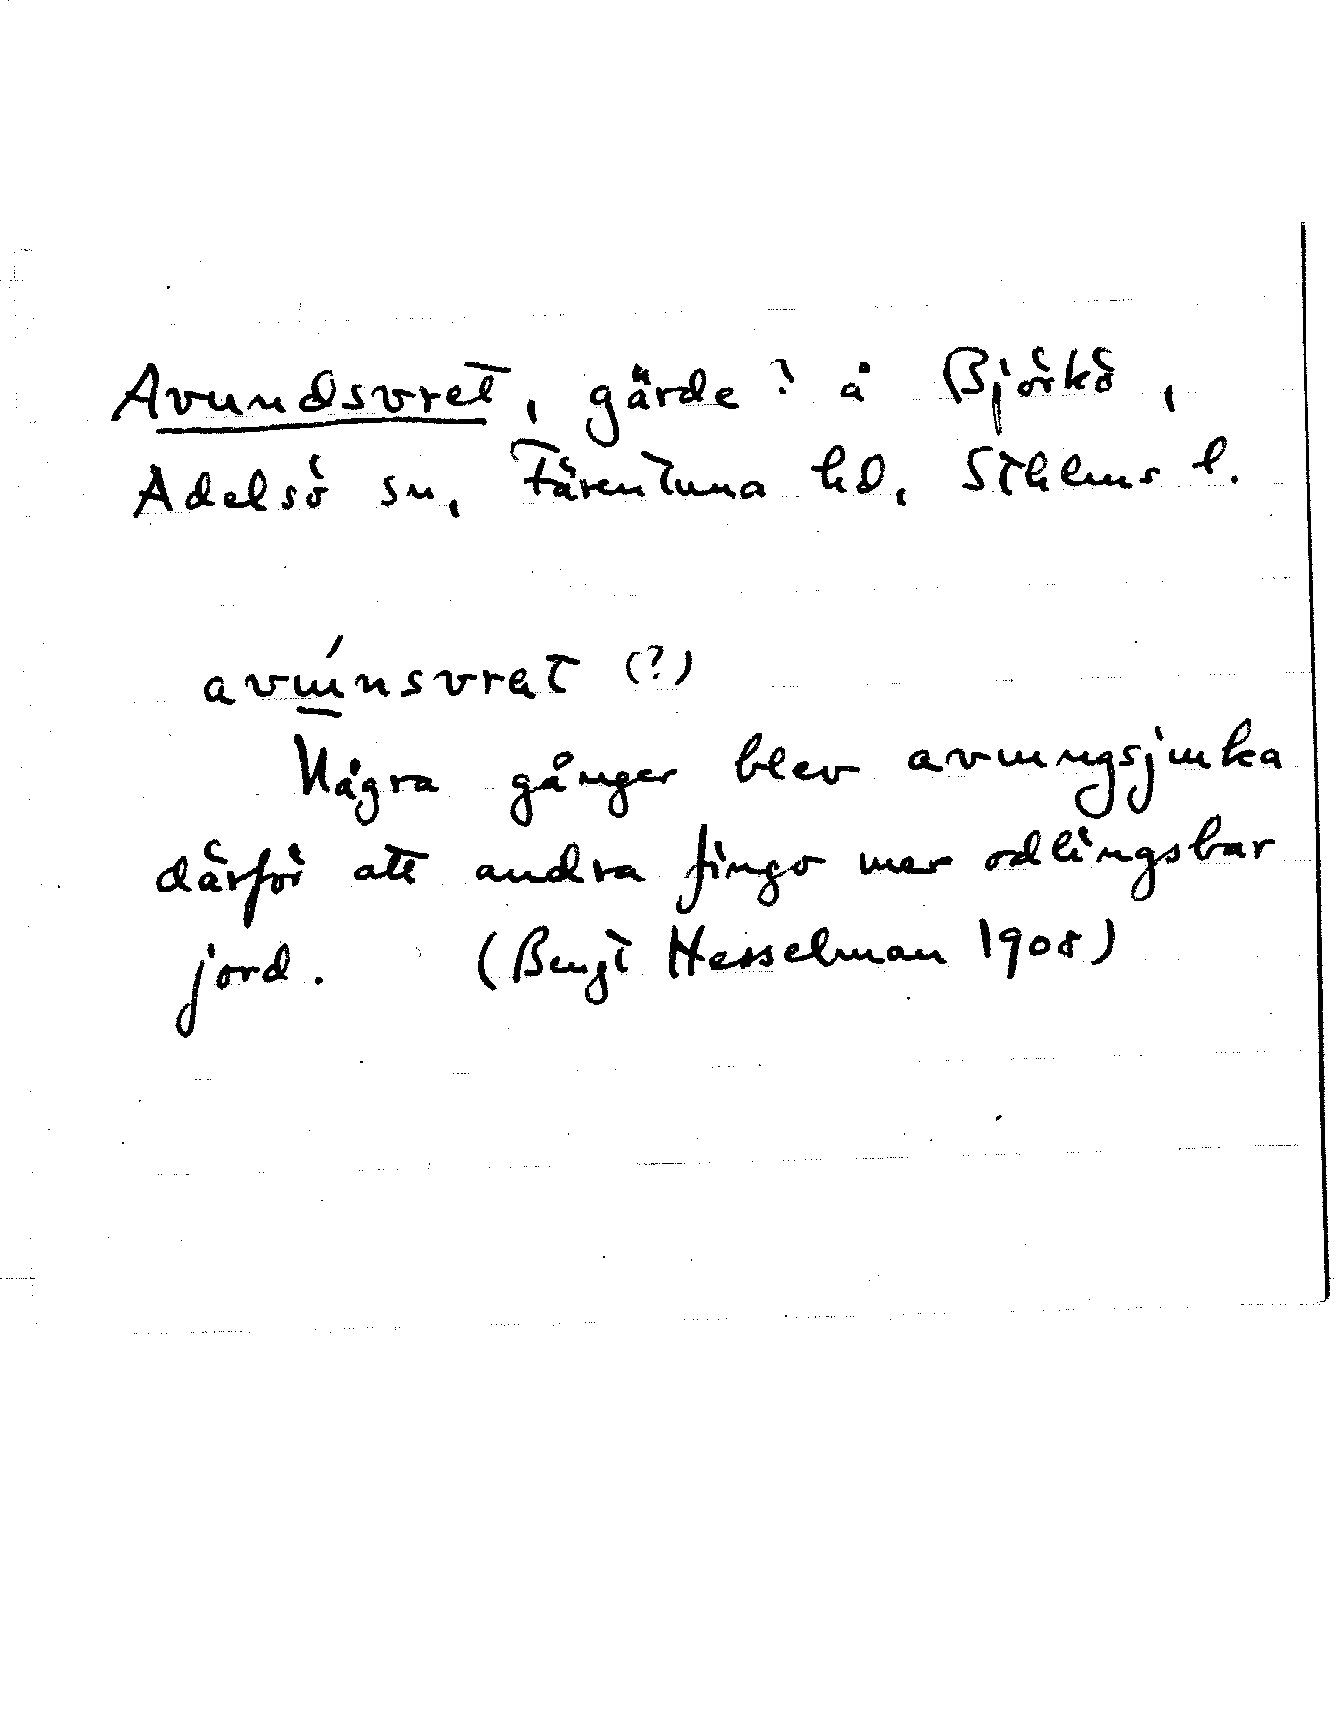 Avundsvret, gärde? å Björkö,
Adelsö sn, Färentuna hd, Sthlms l.
avúnsvret (?)
Några gånger blev avungsjuka
därför att andra fingo mer odlingsbar
jord. (Bengt Hesselman 1908)